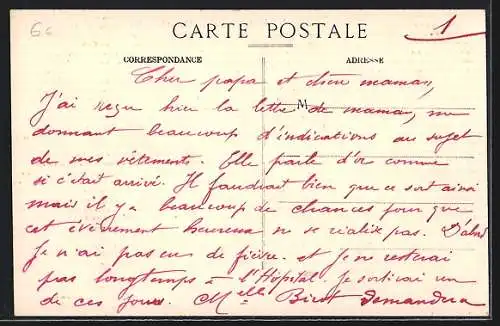 6c
1
CARTE POSTALE
CORRESPONDANCE
ADRESSE
M
Cher papa et chère maman,
J'ai reçu hier la lettre de maman, me
donnant beaucoup d'indications au sujet
de mes vêtements. Elle parle d'or comme
si c'était arrivé. Il faudrait bien que ce soit ainsi
mais il y a beaucoup de chances pour que
cet événement heureux ne se réalise pas. D'abord
je n'ai pas eu de fièvre. et je ne resterai
pas longtemps à l'Hôpital. Je sortirai un
de ces jours. Melle demandera